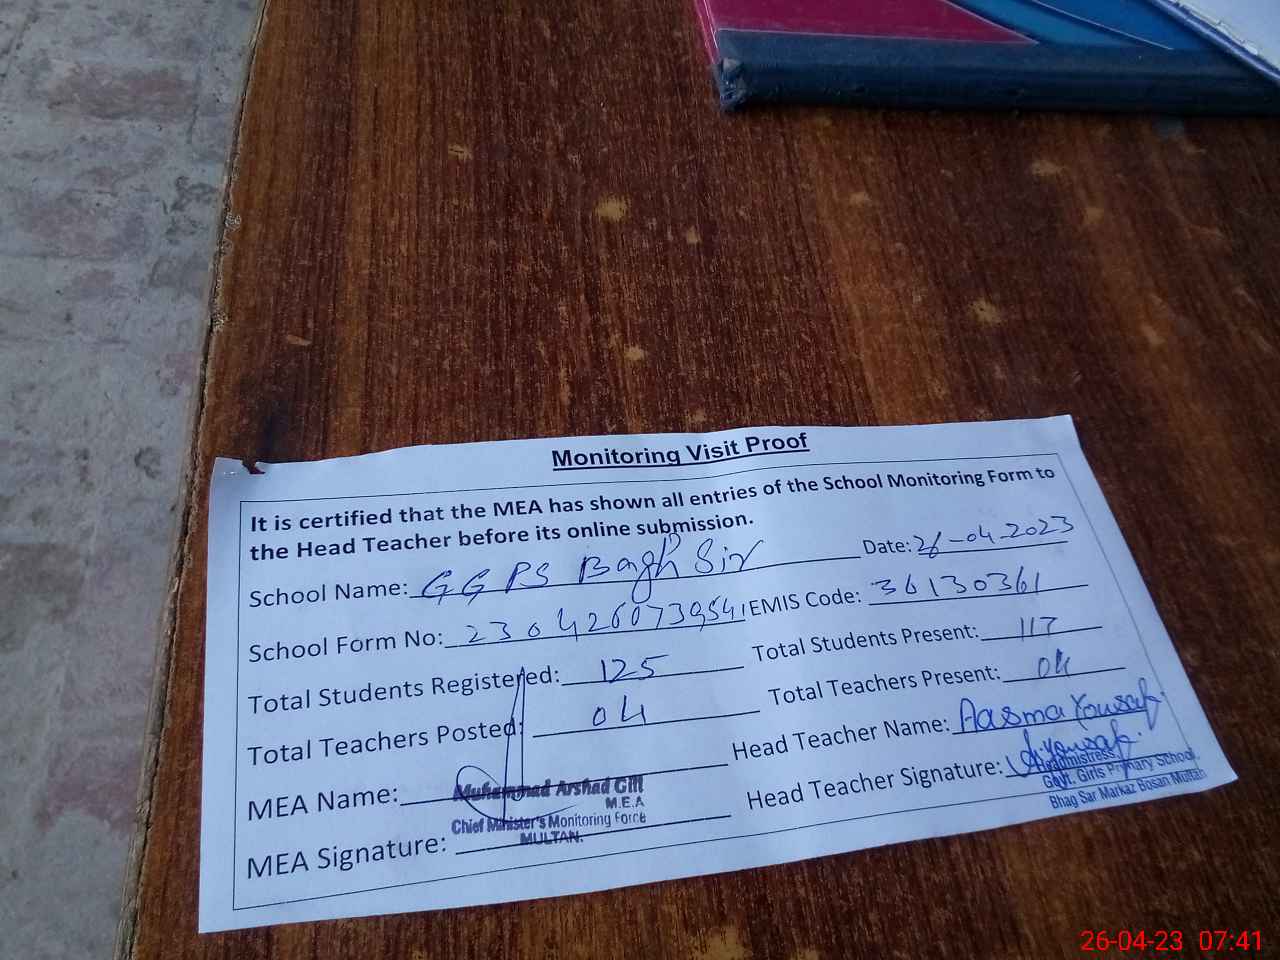 Monitoring Visit Proof
It is certified that the MEA has shown all entries of the School Monitoring Form to
the Head Teacher before its online submission.
School Name: GGPS Bagh Sir Date: 26-04-2023
School Form No: 230426073954, EMIS Code: 36130361
Total Students Registered: 125 Total Students Present: 117
Total Teachers Posted: 04 Total Teachers Present: 04
MEA Name: Head Teacher Name: Aasma Yousaf
Muhammad Arshad Gill
M.E.A
Chief Minister's Monitoring Force
MULTAN.
MEA Signature: Head Teacher Signature: A.Yousaf.
Headmistress
Govt. Girls Primary School,
Bhag Sar Markaz Bosan Multan
26-04-23 07:41